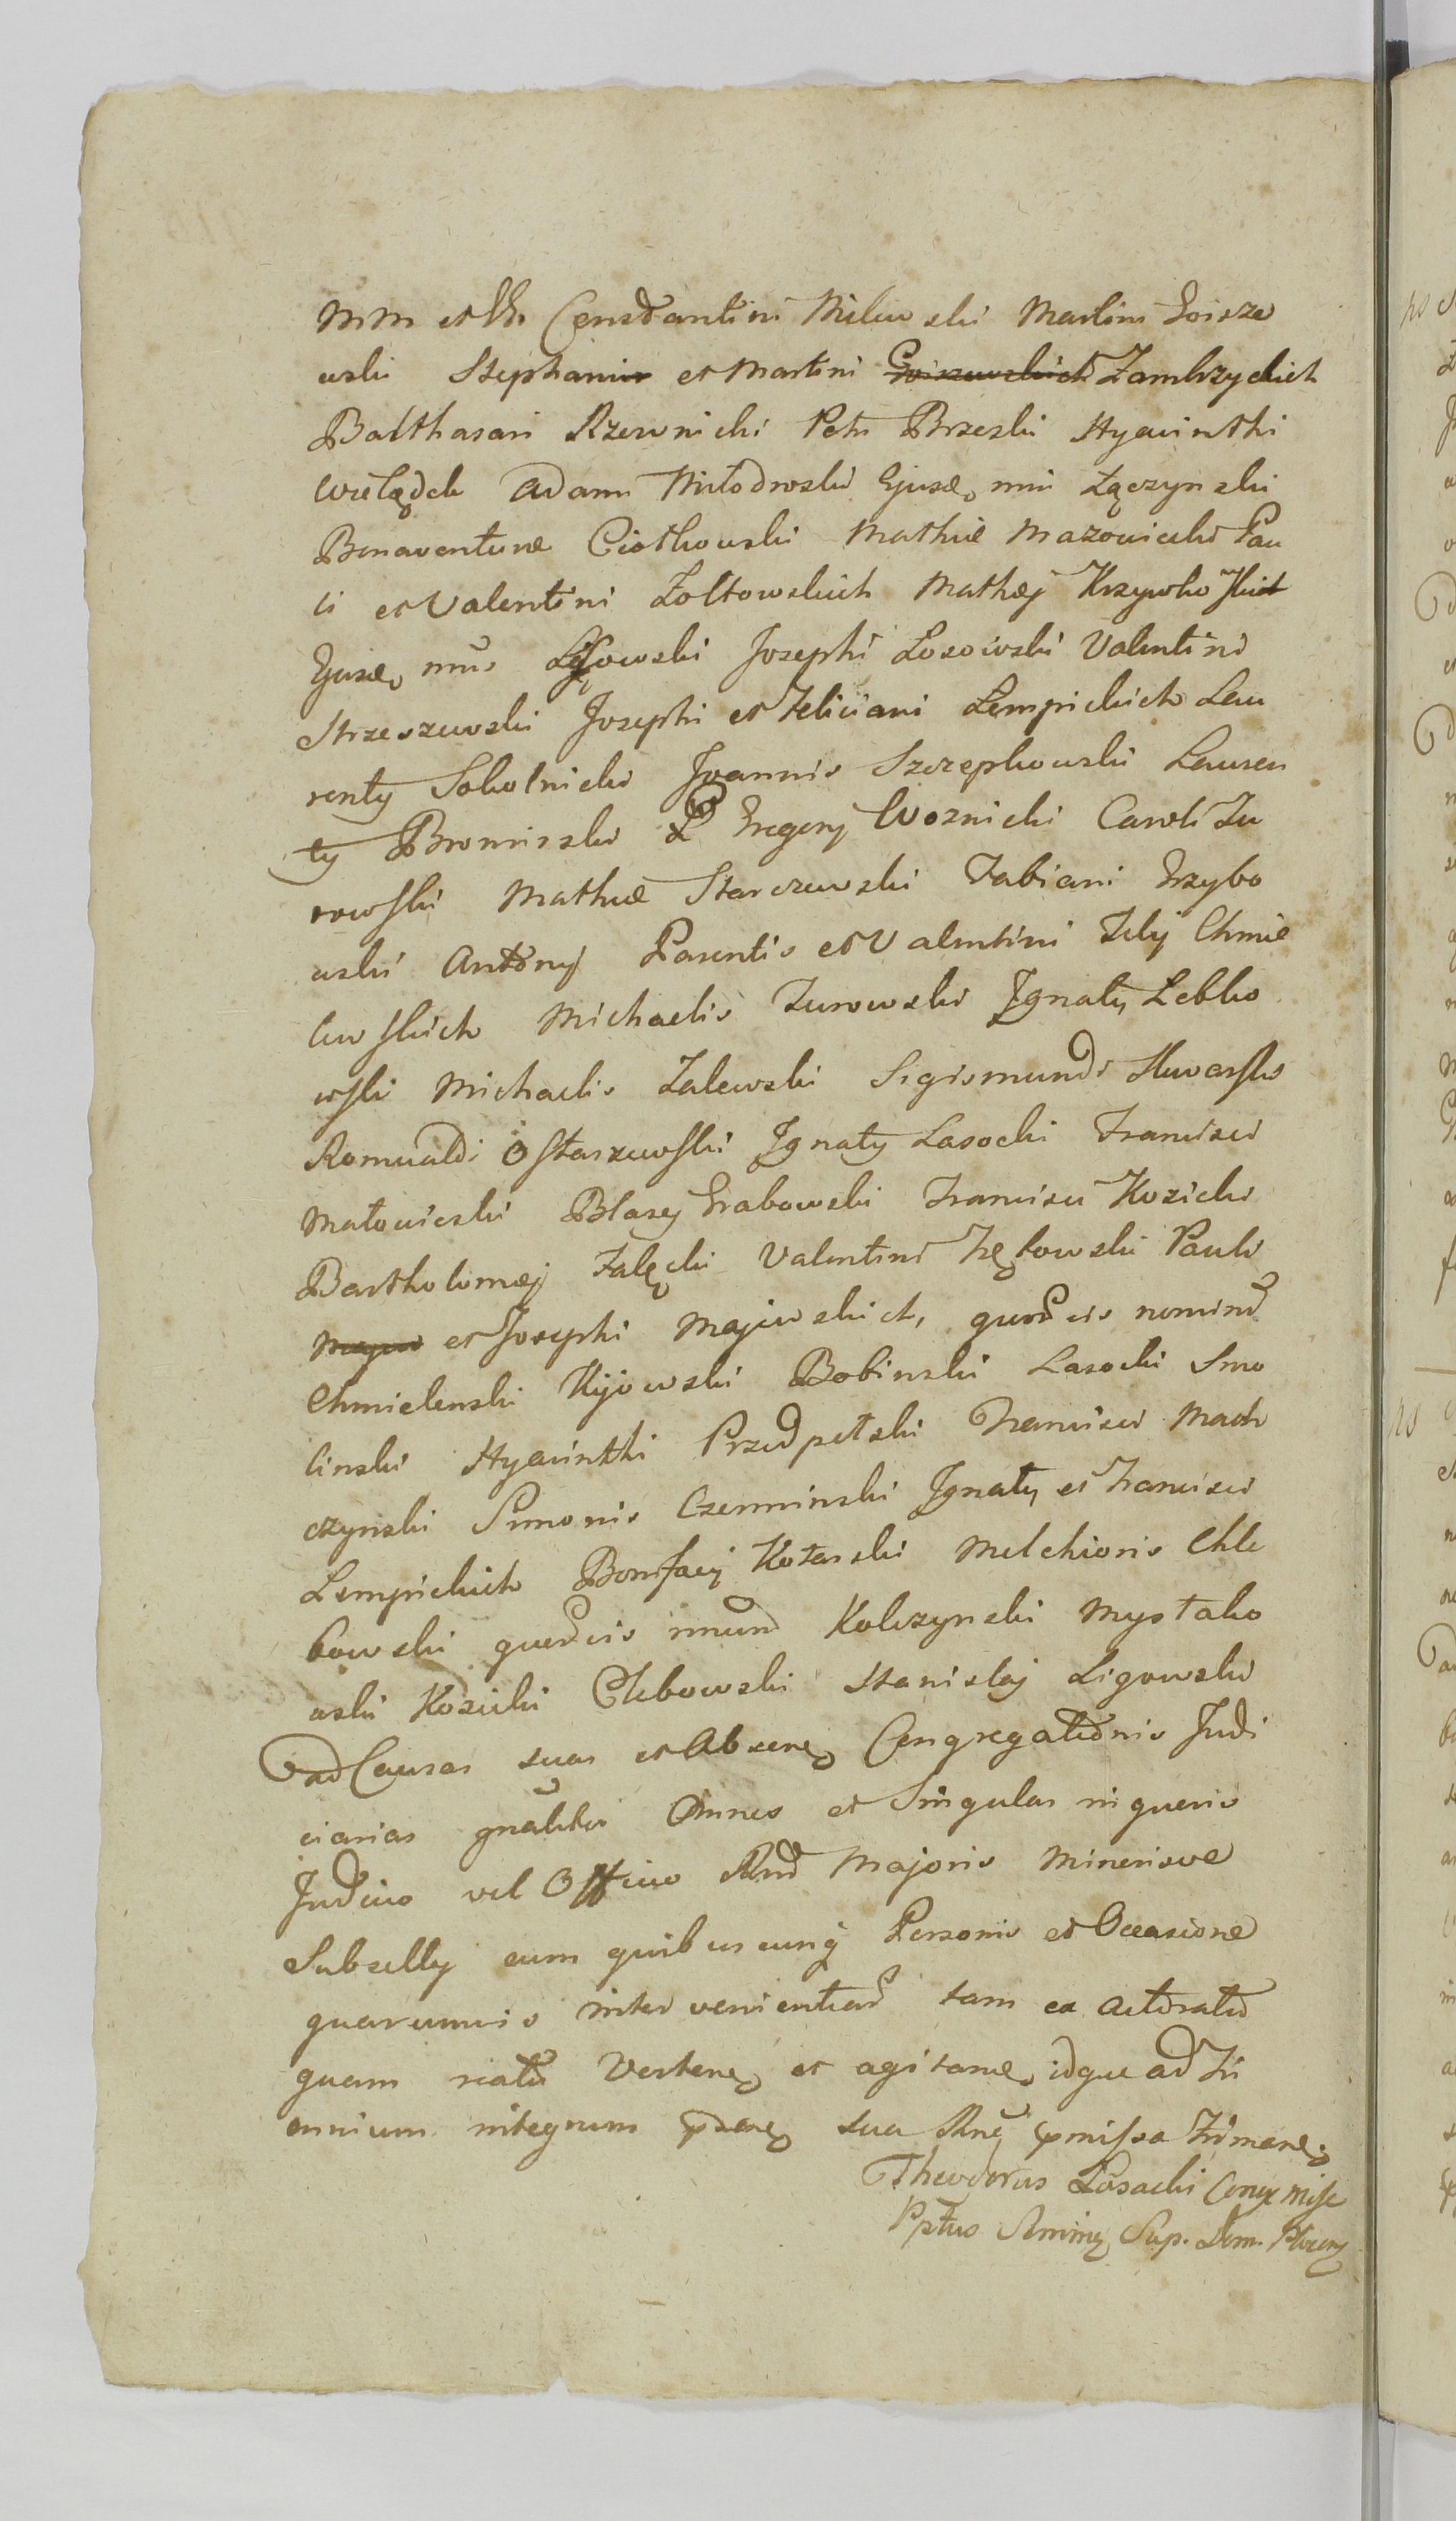 MM et GG Constantini Milewski Martini Goisze
wski Stephani et Martini Goiszewskich Zambrzyckich
Balthasari Rzewnicki Petri Brzeski Hyacinthi
Wielądek Adami Młodowski Ejusdē nnis Łączynski
Bonaventuræ Ciotkowski Mathiæ Mazowiecki Pau
li et Valentini Zołtowskich Mathæj Krzywko skich
Ejusdē nnis Josephi Łosowski Valentini
Strzeszewski Josephi et Feliciani Łempickich Lau
renty Sokolnicki Joannis Szczepkowski Lauren
ty Bromirski Gregorj Woznicki Caroli Zu
rowski Mathiæ Starczewski Fabiani Grzybo
wski Antonij Parentis et Valentini Filij Chmie
lewskich Michaelis Zurowski Ignaty Lebko
wski Michaelis Zalewski Sigismundi Skwarski
Romualdi Ostaszewski Ignaty Lasocki Francisci
Małowieski Blasy Grabowski Francisci Kozicki
Bartholomæj Załęcki Valentini Pauli
Majew et Josephi Majewskich, quorvis nomine
Chmielenski Kijewski Bobinski Lasocki Smo
linski Hyacinthi Przedpełski Francisci Mach
czynski Simonis Czerminski Ignaty et Francisci
Lempickich Bonifacij Kotarski Melchioris Chle
bowski quorvis nnum Kolczynski Mystko
wski Kozicki Chlebowski Stanislaj Ligowski
ad Causas suas et Absenē Congregationis Judi
ciarias gnāliter Omnes et Singulas in quovis
Judicio vel Officio Rnd Majoris Minorisve
Subselly cum quibuscunq Personis et Occasione
quarumvis intervenientiar tam ex actoratu
quam reatu Vertenē et agitanē idque ad Tri
ennium integrum sua Rnē pmissa Firmanē.
Theodorus Łosacki
Pptus Sup. Dom.